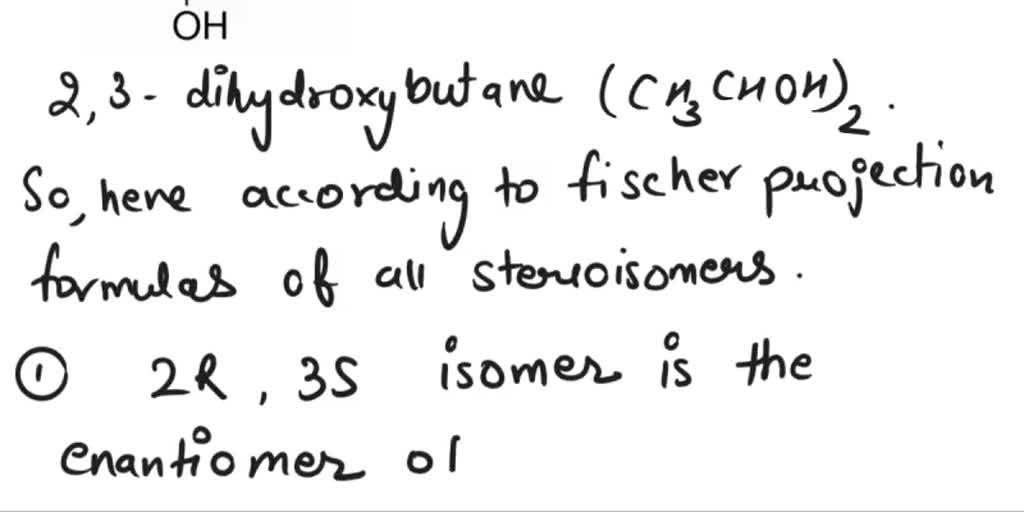 OH
2,3- dihydroxybutane (CH3CHOH)2.
So, here according to fischer projection
formulas of all stereoisomers.
① 2R, 3S isomer is the
enantiomer of